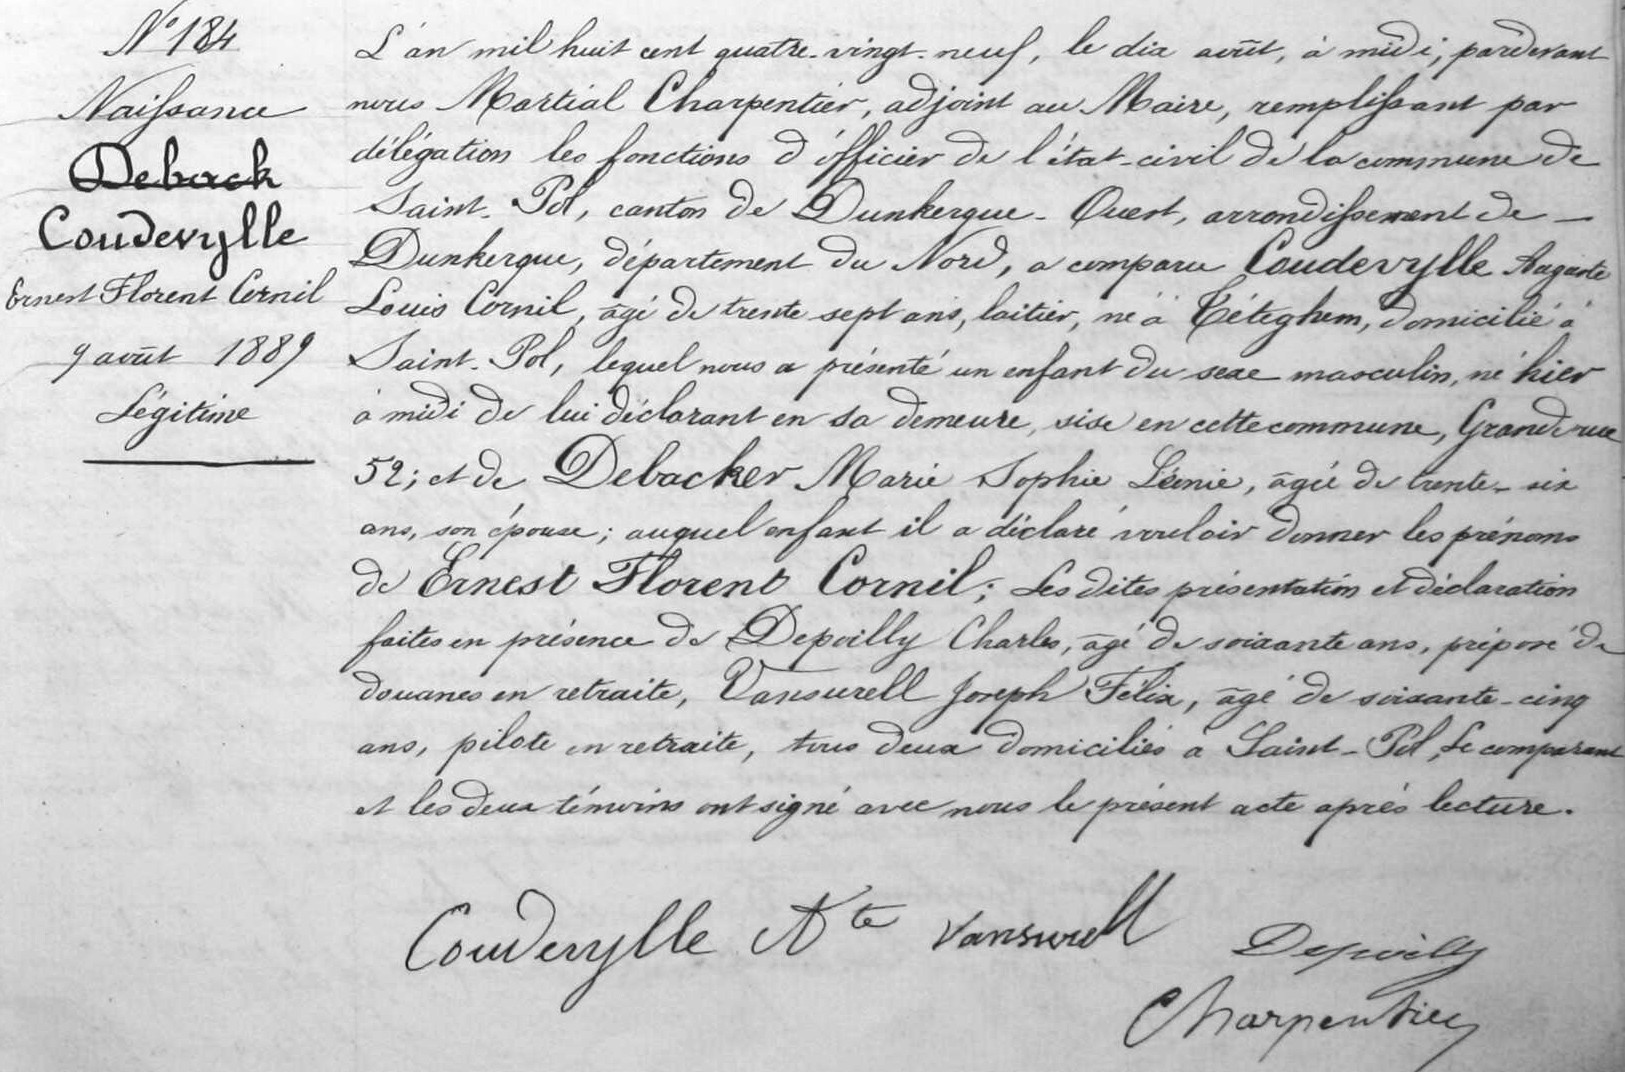 N° 184
Naissance
Deback
Coudevylle
Ernest Florent Cornil
9 août 1889
Légitime
L'an mil huit cent quatre-vingt-neuf, le dix août, à midi, pardevant
nous Martial Charpentier, adjoint au Maire, remplissant par
délégation les fonctions d'officier de l'état-civil de la commune de
Saint-Pol, canton de Dunkerque-Ouest, arrondissement de
Dunkerque, département du Nord, a comparu Coudevylle Auguste
Louis Cornil, âgé de trente sept ans, laitier, né à Téteghem, domicilié à
Saint-Pol, lequel nous a présenté un enfant du sexe masculin, né hier
à midi de lui déclarant en sa demeure, sise en cette commune, Grande rue
52; et de Debacker Marie Sophie Léonie, âgée de trente-six
ans, son épouse; auquel enfant il a déclaré vouloir donner les prénoms
de Ernest Florent Cornil; Les dites présentation et déclaration
faites en présence de Depoilly Charles, âgé de soixante ans, préposé de
douanes en retraite, Vansurell Joseph Félix, âgé de soixante-cinq
ans, pilote en retraite, tous deux domiciliés à Saint-Pol, Le comparant
et les deux témoins ont signé avec nous le présent acte après lecture.
Coudevylle Ate Vansurell Depoilly
Charpentier